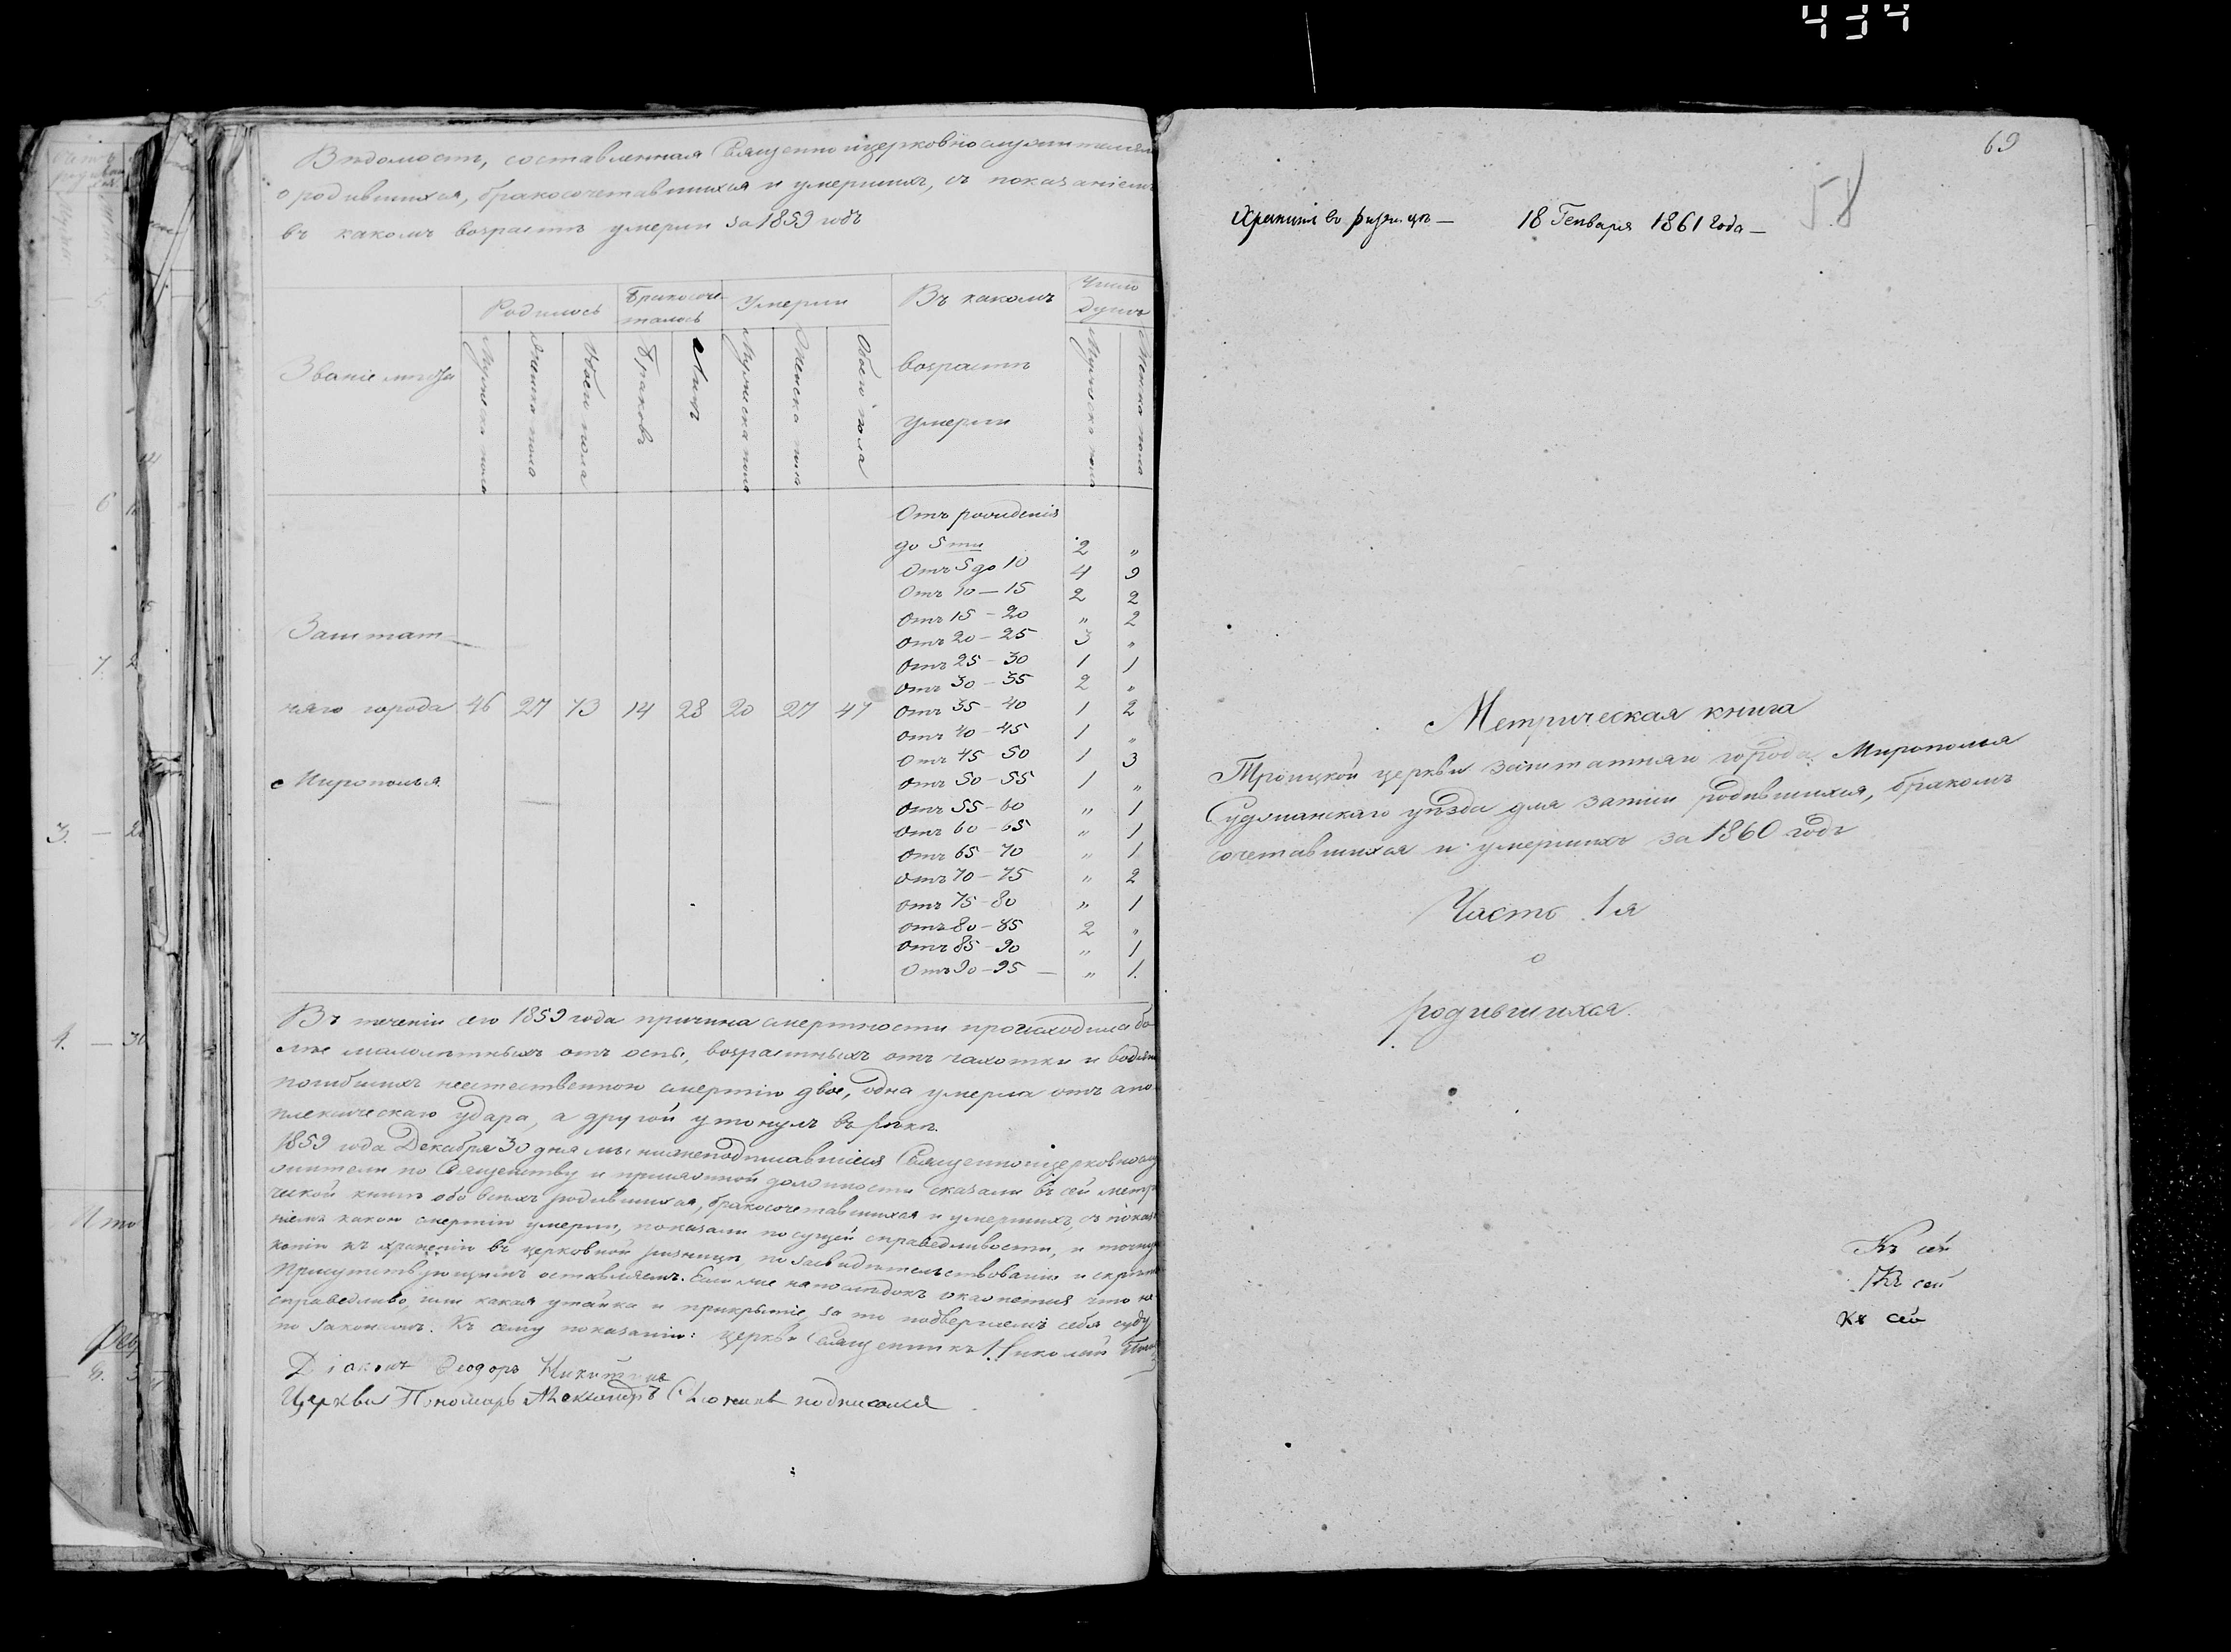 434
Вѣдомость, составленная Священно и церковнослужителями
о родившихся, бракосочетавшихся и умершихъ, съ показаніемъ
въ какомъ возрастѣ умерли за 1859 годъ
Званіе мѣста
Родилось
Бракосоче-
талось
Умерли
Въ какомъ
возрастѣ
умерли
Число
душъ
Мужеска пола
Женска пола
Обоего пола
Браковъ
Лицъ
Мужеска пола
Женска пола
Обоего пола
Мужеска пола
Женска пола
Отъ рожденія
до 5 ти 2 „
Отъ 5 до 10 4 9
Отъ 10 — 15 2 2
Отъ 15 – 20 „ 2
Отъ 20 – 25 3 „
Отъ 25 – 30 1 1
Отъ 30 – 35 2 „
Отъ 35 – 40 1 2
Отъ 40 – 45 1 „
Отъ 45 – 50 1 3
Отъ 50 – 55 1 „
Отъ 55 – 60 „ 1
Отъ 60 – 65 „ 1
Отъ 65 – 70 „ 1
Отъ 70 – 75 „ 2
Отъ 75 – 80 „ 1
Отъ 80 – 85 2 „
Отъ 85 – 90 „ 1
Отъ 90 – 95 — „ 1.
Заштат–
наго города 46 27 73 14 28 20 27 47
Мирополья
Въ теченіи сего 1859 года причина смертности происходила бо
лѣе малолѣтныхъ отъ оспы, возрастныхъ отъ чахотки и водян
погибшихъ неестественною смертію двое, одна умерла отъ апо
плексическаго удара, а другой утонулъ въ рѣкѣ.
1859 года Декабря 30 дня мы нижеподписавшіеся Священно и церковнослу
жители по Священству и присяжной должности сказали въ сей метри
ческой книгѣ обо всѣхъ родившихся, бракосочетавшихся и умершихъ, съ показа
ніемъ какою смертію умерли, показали по сущей справедливости, и точную
копію къ храненію въ церковной ризницѣ, по засвидѣтельствованіи и скрѣпѣ
Присутствующимъ оставляемъ. Если же напослѣдокъ окажется что не
справедливо, или какая утайка и прикрытіе, за то подвергаемъ себя суду
по законамъ. Къ сему показанію: церкви Священникъ Николай
Діаконъ Ѳеодоръ Никитинъ
Церкви Пономарь Александръ подписался
69
58
Хранить въ ризницѣ — 18 Генваря 1861 года —
Метрическая книга
Троицкой церкви заштатнаго города Мирополья
Суджанскаго уѣзда для записи родившихся, бракомъ
сочетавшихся и умершихъ за 1860 годъ
Часть 1я
о
родившихся.
Къ сей
Къ сей
Къ сей